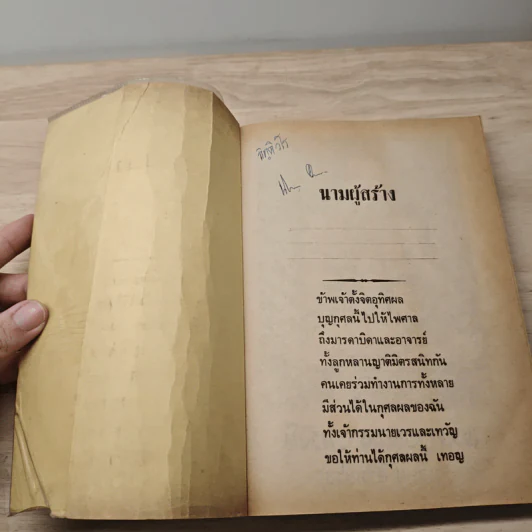 นามผู้สร้าง
ข้าพเจ้าตั้งจิตอุทิศผล
บุญกุศลนี้ไปให้ไพศาล
ถึงมารดาบิดาและอาจารย์
ทั้งลูกหลานญาติมิตรสนิทกัน
คนเคยร่วมทำงานการทั้งหลาย
มีส่วนได้ในกุศลผลของฉัน
ทั้งเจ้ากรรมนายเวรและเทวัญ
ขอให้ท่านได้กุศลผลนี้ เทอญ